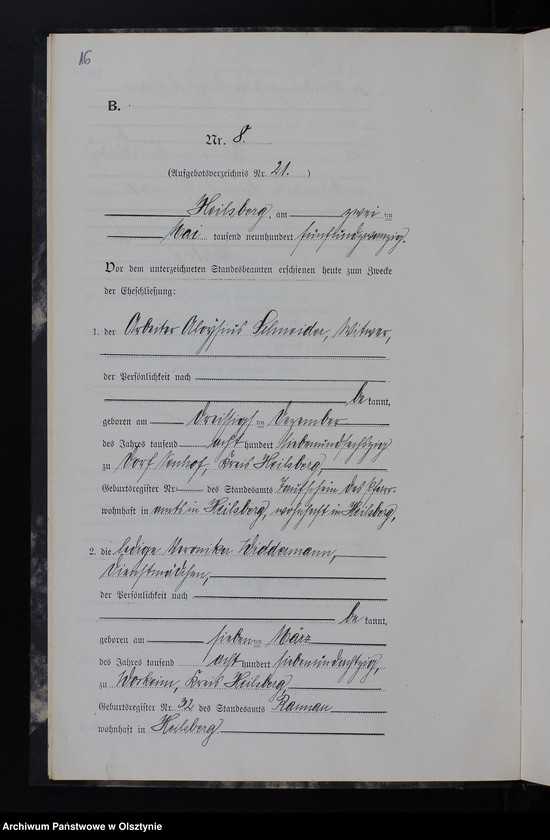 16
B.
Nr. 8.
(Aufgebotsverzeichnis Nr. 21. )
Heilsberg, am zwei ten
Mai tausend neunhundert fünfundzwanzig.
Vor dem unterzeichneten Standesbeamten erschienen heute zum Zwecke
der Eheschließung:
1. der Arbeiter Aloysius Schneider, Witwer,
der Persönlichkeit nach
be kannt,
geboren am dreissigs ten Dezember
des Jahres tausend acht hundert siebenundsechszig
zu Dorf Neuhof, Kreis Heilsberg,
Geburtsregister Nr. des Standesamts Taufschein des Pfarr-
wohnhaft in amts in Heilsberg, wohnhaft in Heilsberg,
2. die ledige Veronika Widdermann,
Dienstmädchen,
der Persönlichkeit nach
be kannt,
geboren am sieben ten März
des Jahres tausend acht hundert siebenundachtzig,
zu Workeim, Kreis Heilsberg,
Geburtsregister Nr. 32 des Standesamts Raunau
wohnhaft in Heilsberg
Archiwum Państwowe w Olsztynie